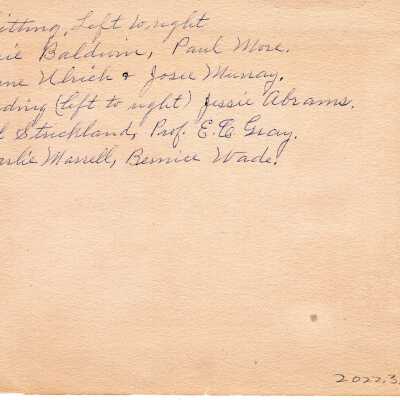 itting, Left to right
ie Baldwin, Paul More.
ne Ulrich & Josie Murray.
nding (left to right) Jessie Abrams.
l Strickland, Prof. E.C. Gray.
arlie Marrell, Bernice Wade.
2022.3.